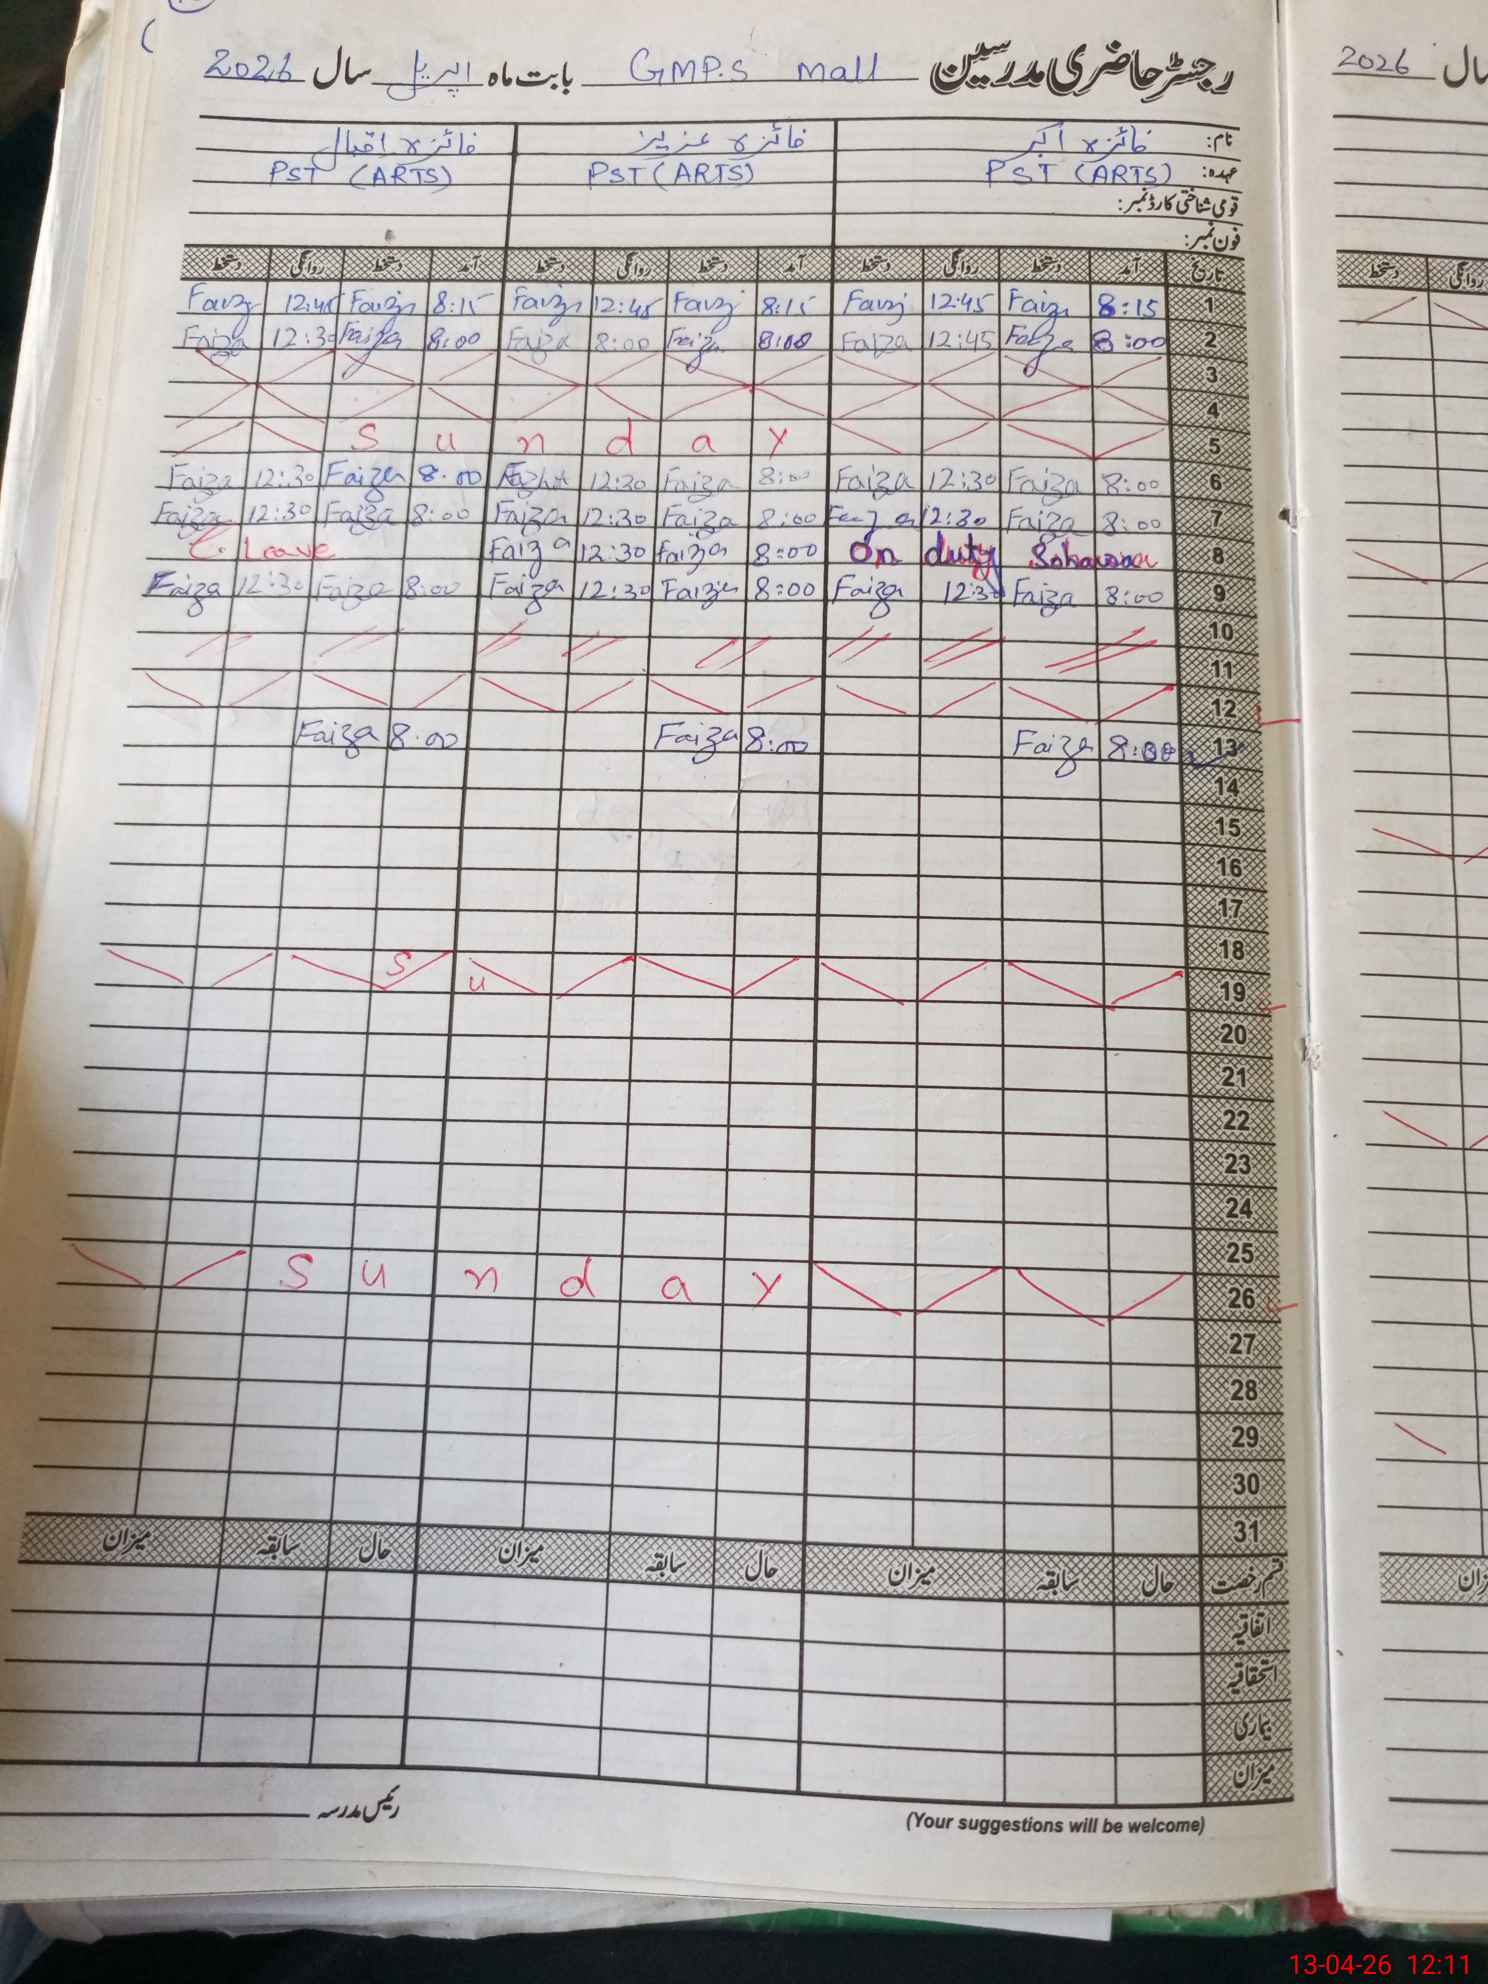 رجسٹر حاضری مدرسین GMP.S mall بابت ماہ اپریل سال 2026
نام: فائزہ اکبر فائزہ عزیز فائزہ اقبال
عہدہ: PST (ARTS) PST (ARTS) PST (ARTS)
قومی شناختی کارڈ نمبر:
فون نمبر:
تاریخ آمد دستخط روانگی دستخط آمد دستخط روانگی دستخط آمد دستخط روانگی دستخط
1 8:15 Faiza 12:45 8:15 12:45 8:15 12:45
2 8:00 Faiza 12:45 Faiza 8:00 Faiza 8:00 Faiza 8:00 Faiza 12:30 Faiza
3
4
5 S u n d a y
6 8:00 Faiza 12:30 Faiza 8:00 Faiza 12:30 8:00 Faiza 12:30 Faiza
7 8:00 Faiza 12:30 Faiza 8:00 Faiza 12:30 Faiza 8:00 Faiza 12:30 Faiza
8 On duty 8:00 Faiza 12:30 Faiza C. Leave
9 8:00 Faiza 12:30 Faiza 8:00 Faiza 12:30 Faiza 8:00 Faiza 12:30 Faiza
10
11
12
13 8:00 Faiza 8:00 Faiza 8:00 Faiza
14
15
16
17
18
19 S u
20
21
22
23
24
25
26 S u n d a y
27
28
29
30
31
قسم رخصت حال سابقہ میزان حال سابقہ میزان حال سابقہ میزان
اتفاقیہ
استحقاقیہ
بیماری
میزان
رئیس مدرسہ
(Your suggestions will be welcome)
2026 سال
روانگی دستخط
13-04-26 12:11